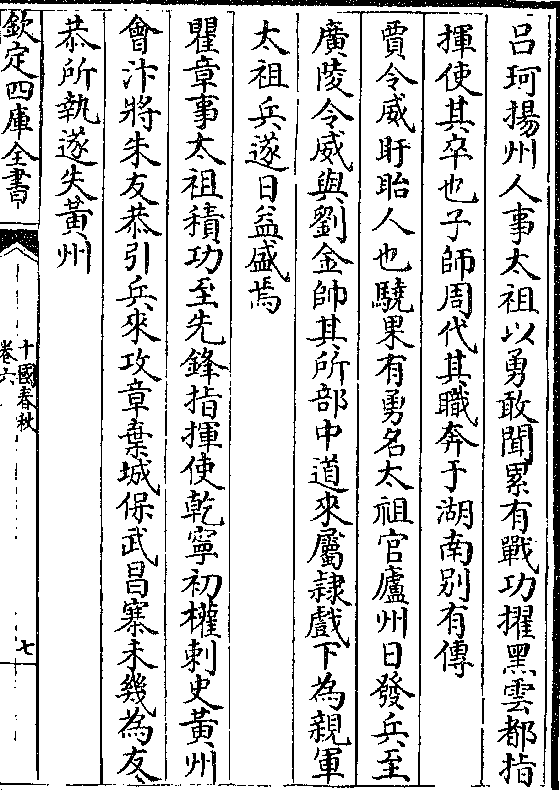 呂珂揚州人事太祖以勇敢聞累有戰功擢黑雲都指
揮使其卒也子師周代其職奔于湖南别有傳
賈令威盱眙人也驍果有勇名太祖官廬州日發兵至
廣陵令威與劉金帥其所部中道來屬隷戲下為親軍
太祖兵遂日益盛焉
瞿章事太祖積功至先鋒指揮使乾寧初權刺史黃州
會汴將朱友恭引兵來攻章棄城保武昌寨未幾為友
恭所執遂失黃州
欽定四庫全書
十國春秋
卷六
七